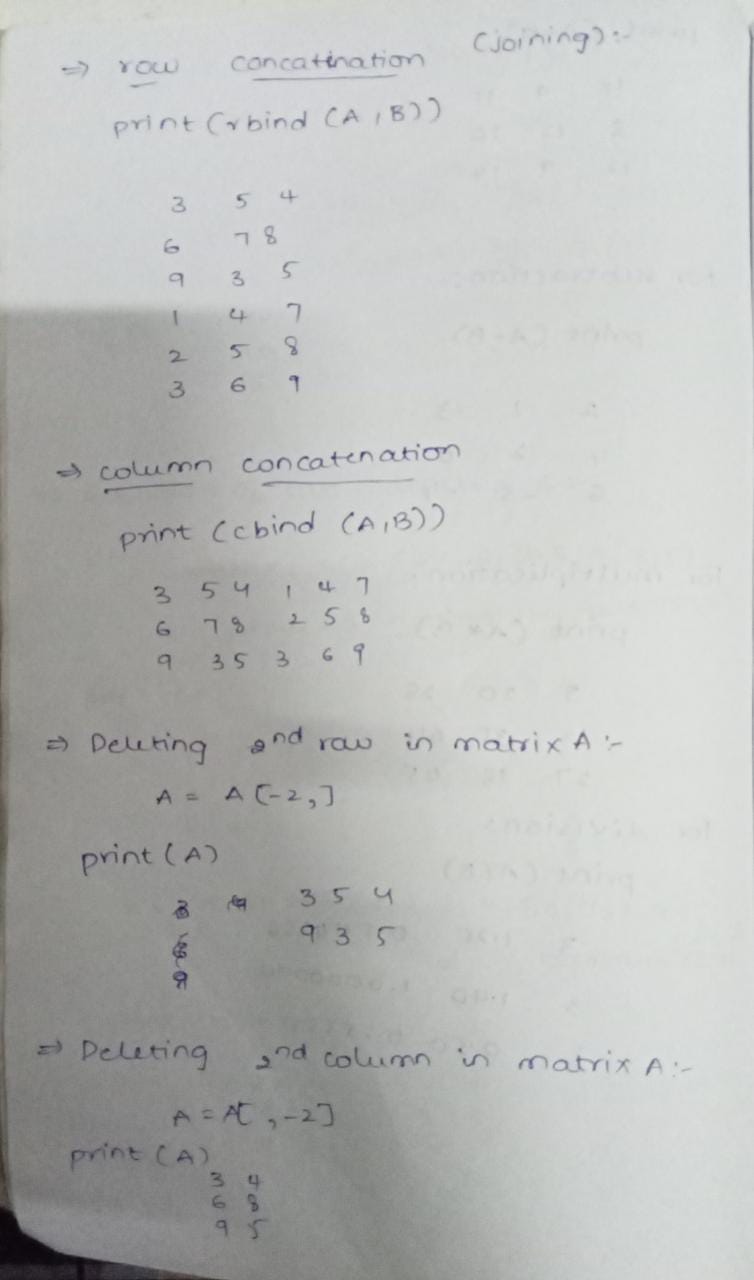 ⇒ row concatination (joining):-
print (rbind (A, B))
3 5 4
6 7 8
9 3 5
1 4 7
2 5 8
3 6 9
⇒ column concatenation
print (cbind (A,B))
3 5 4 1 4 7
6 7 8 2 5 8
9 3 5 3 6 9
⇒ Deleting 2nd row in matrix A :-
A = A [-2,]
print (A)
3 5 4
9 3 5
⇒ Deleting 2nd column in matrix A :-
A = A[ , -2]
print (A)
3 4
6 8
9 5